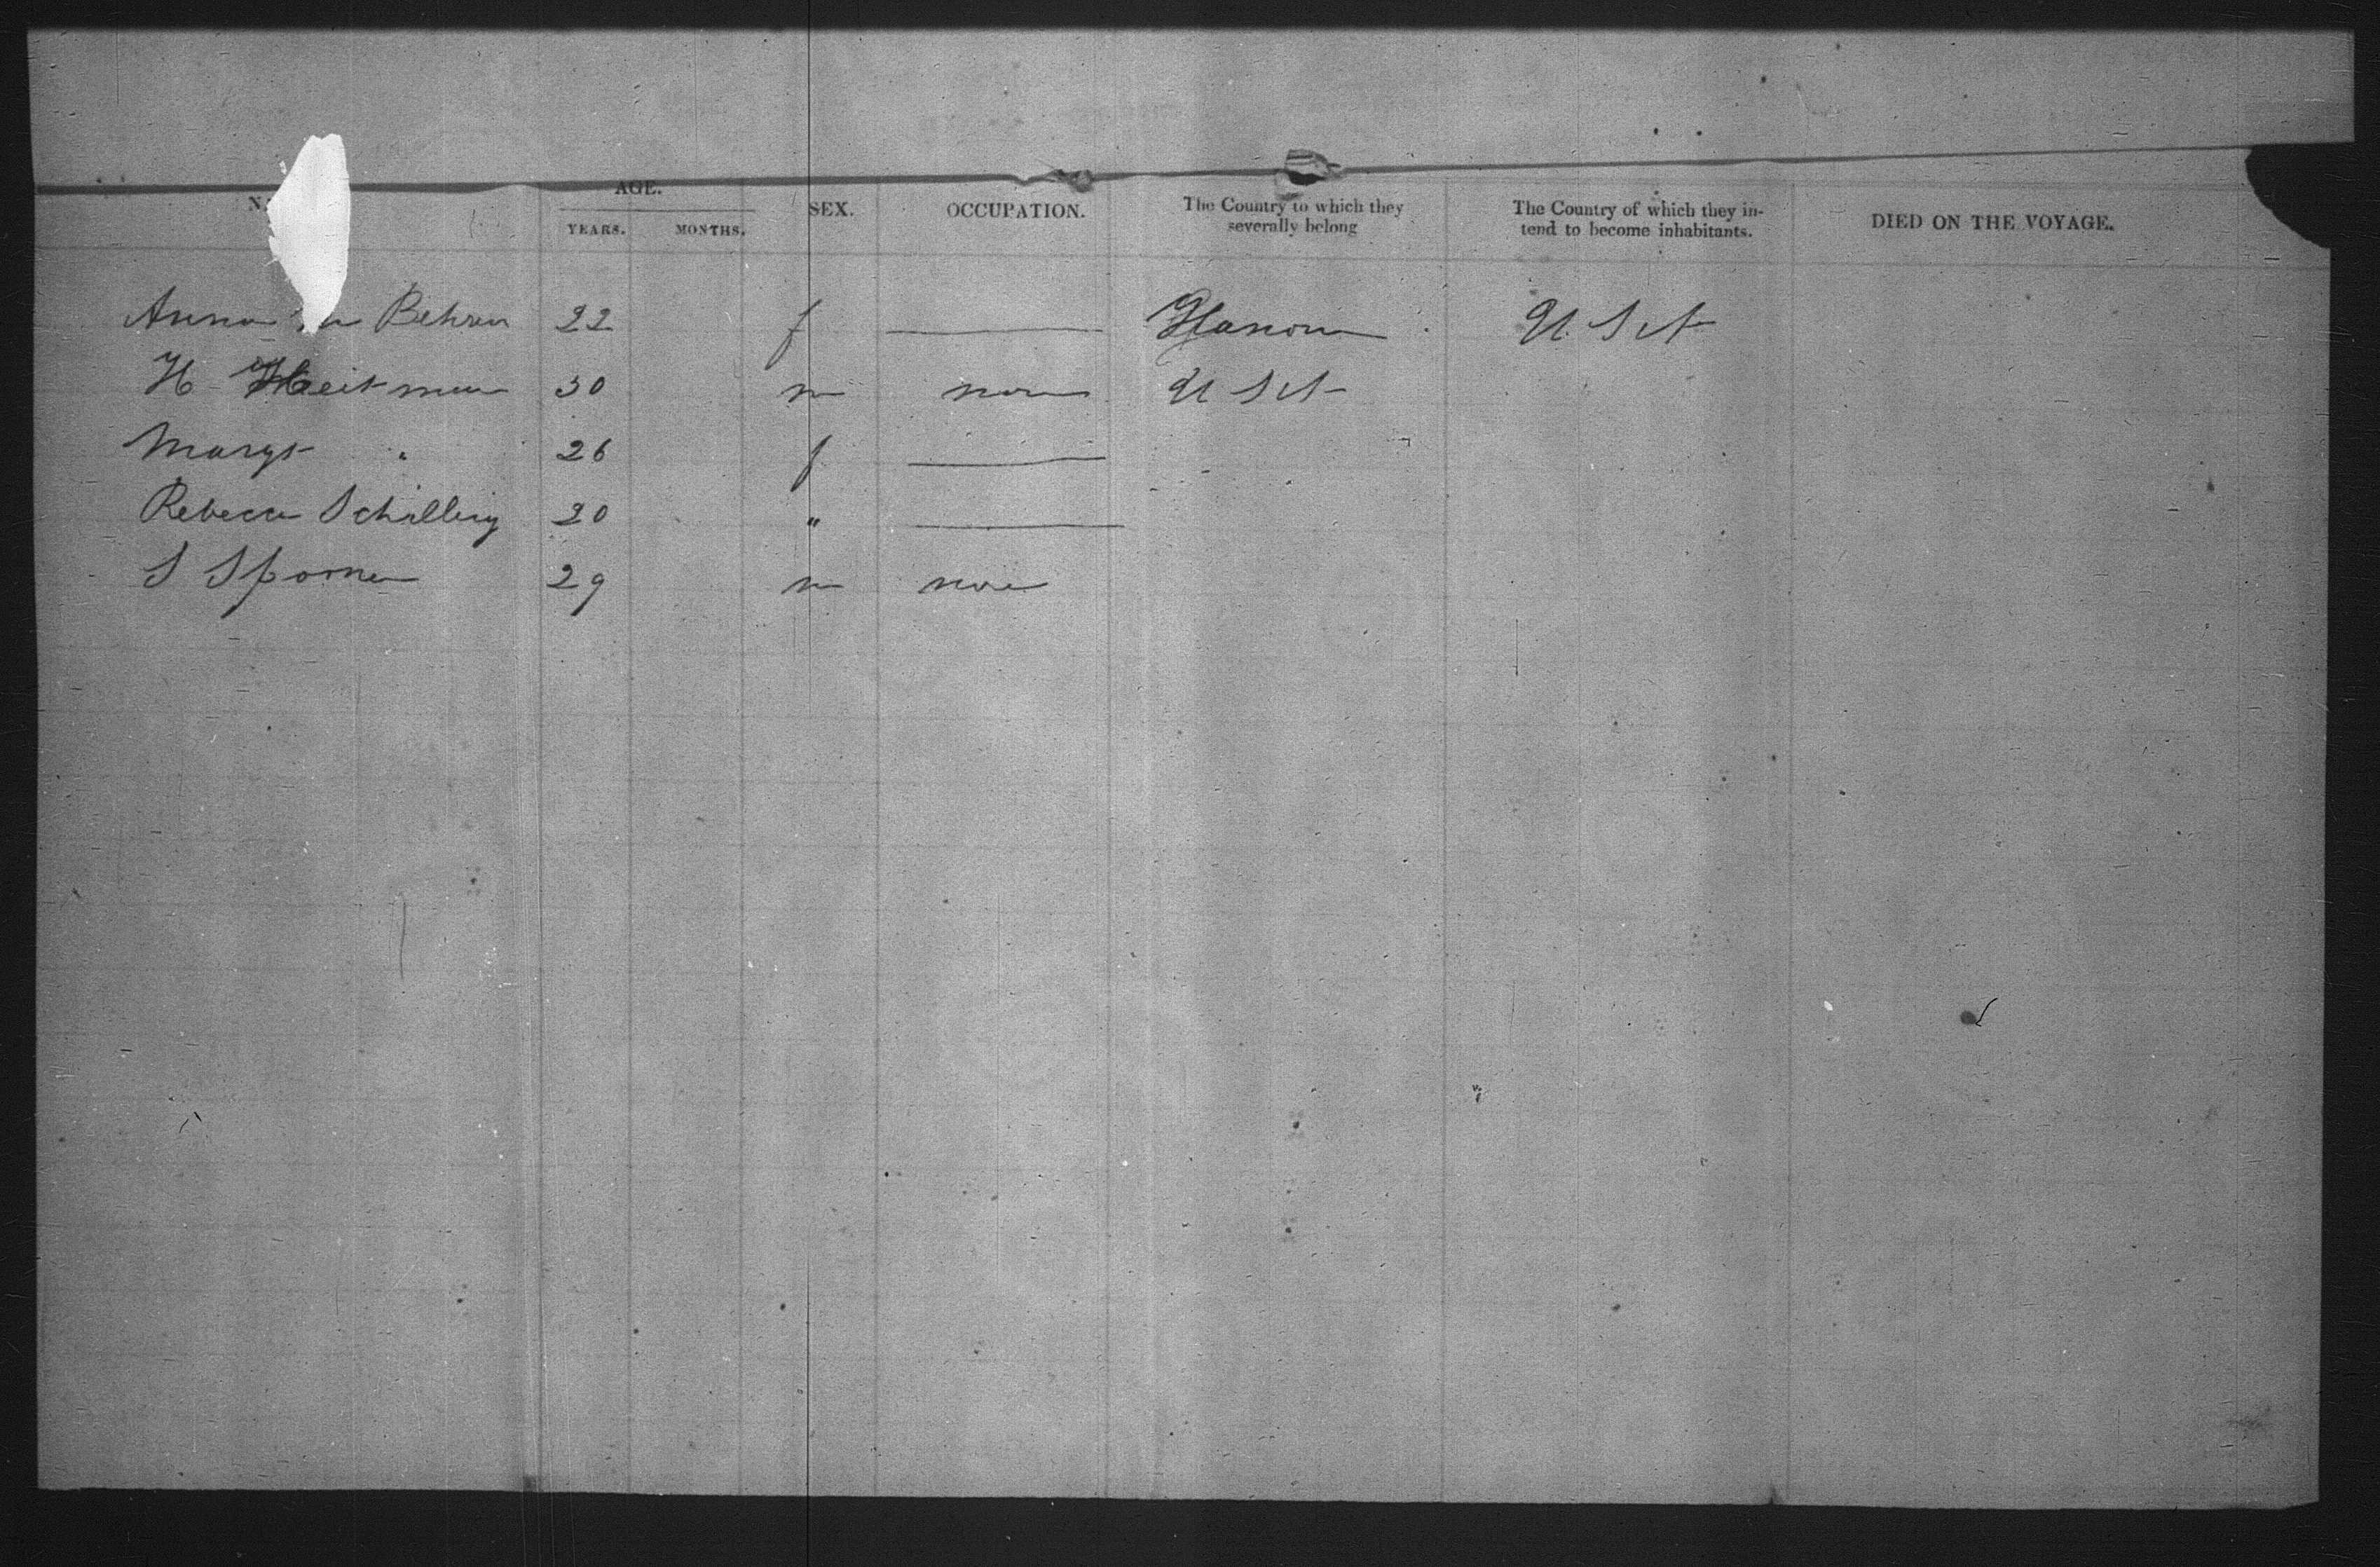 AGE.
SEX. OCCUPATION. The Country to which they severally belong The Country of which they intend to become inhabitants. DIED ON THE VOYAGE.
YEARS. MONTHS.
Anna Behren 22 f Hanover U S A
H Heitman 30 m none U S A
Margt " 26 f
Rebecca Schilling 20 "
S 29 m none